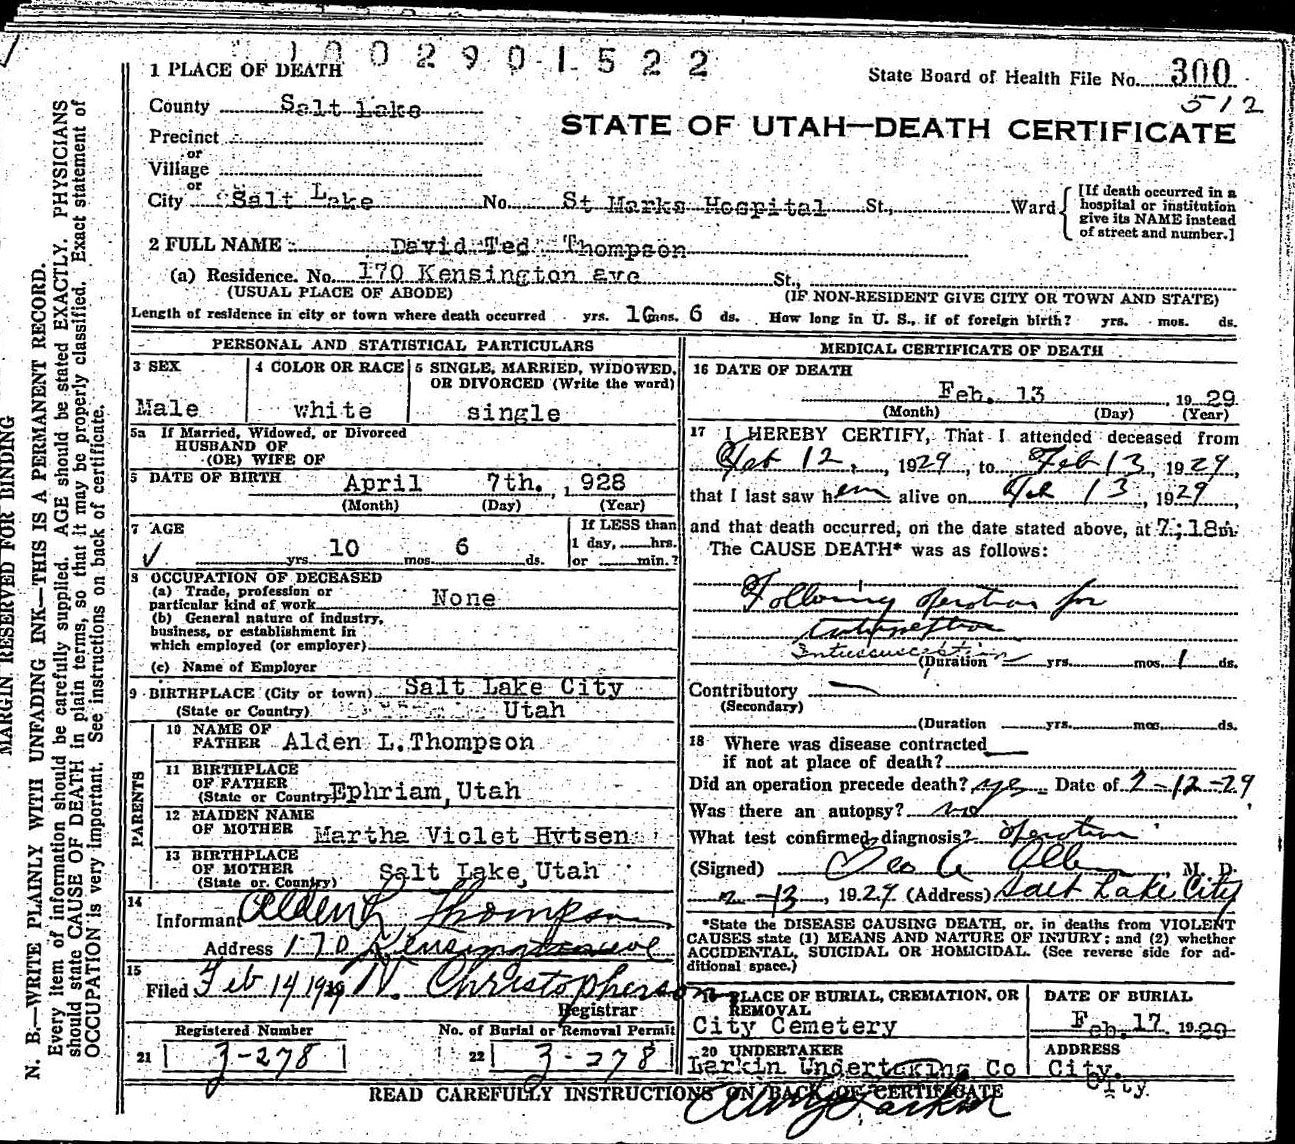 1002901522
1 PLACE OF DEATH
State Board of Health File No. 300
512
County Salt Lake
STATE OF UTAH—DEATH CERTIFICATE
Precinct
or
Village
or
City Salt Lake No. St Marks Hospital St., Ward
[If death occurred in a
hospital or institution
give its NAME instead
of street and number.]
2 FULL NAME David Ted Thompson
(a) Residence. No. 170 Kensington ave St.,
(USUAL PLACE OF ABODE) (IF NON-RESIDENT GIVE CITY OR TOWN AND STATE)
Length of residence in city or town where death occurred yrs. 10 mos. 6 ds. How long in U. S., if of foreign birth? yrs. mos. ds.
PERSONAL AND STATISTICAL PARTICULARS
3 SEX
Male
4 COLOR OR RACE
white
5 SINGLE, MARRIED, WIDOWED,
OR DIVORCED (Write the word)
single
5a If Married, Widowed, or Divorced
HUSBAND OF
(OR) WIFE OF
5 DATE OF BIRTH April 7th. , 1928
(Month) (Day) (Year)
7 AGE
yrs 10 mos. 6 ds.
If LESS than
1 day, hrs.
or min.?
8 OCCUPATION OF DECEASED
(a) Trade, profession or
particular kind of work None
(b) General nature of industry,
business, or establishment in
which employed (or employer)
(c) Name of Employer
9 BIRTHPLACE (City or town) Salt Lake City
(State or Country) Utah
PARENTS
10 NAME OF
FATHER Alden L.Thompson
11 BIRTHPLACE
OF FATHER
(State or Country) Ephriam, Utah
12 MAIDEN NAME
OF MOTHER Martha Violet Hytsen
13 BIRTHPLACE
OF MOTHER
(State or Country) Salt Lake, Utah
14
Informant Alden L Thompson
Address 170 Kensington ave
15
Filed Feb 14 1929 N. Christopherson
Registrar
Registered Number
21 3-278
No. of Burial or Removal Permit
22 3-278
MEDICAL CERTIFICATE OF DEATH
16 DATE OF DEATH
Feb. 13 , 1929
(Month) (Day) (Year)
17 I HEREBY CERTIFY, That I attended deceased from
Feb 12, , 1929 , to Feb 13 , 1929,
that I last saw him alive on Feb 13 , 1929,
and that death occurred, on the date stated above, at 7;18m.
The CAUSE DEATH* was as follows:
Following operation for
Intussusception
(Duration yrs. mos. 1 ds.
Contributory
(Secondary)
(Duration yrs. mos. ds.
18 Where was disease contracted
if not at place of death?
Did an operation precede death? yes Date of 2-12-29
Was there an autopsy? no
What test confirmed diagnosis? operation
(Signed) Geo A Allen M. D.
2-13, 1929 (Address) Salt Lake City
*State the DISEASE CAUSING DEATH, or, in deaths from VIOLENT
CAUSES state (1) MEANS AND NATURE OF INJURY; and (2) whether
ACCIDENTAL, SUICIDAL OR HOMICIDAL. (See reverse side for ad-
ditional space.)
19 PLACE OF BURIAL, CREMATION, OR
REMOVAL
City Cemetery
DATE OF BURIAL
Feb. 17 1929
20 UNDERTAKER
Larkin Undertaking Co
ADDRESS
City.
City.
READ CAREFULLY INSTRUCTIONS ON BACK OF CERTIFICATE
MARGIN RESERVED FOR BINDING
N. B.—WRITE PLAINLY WITH UNFADING INK—THIS IS A PERMANENT RECORD.
Every item of information should be carefully supplied. AGE should be stated EXACTLY. PHYSICIANS
should state CAUSE OF DEATH in plain terms, so that it may be properly classified. Exact statement of
OCCUPATION is very important. See instructions on back of certificate.